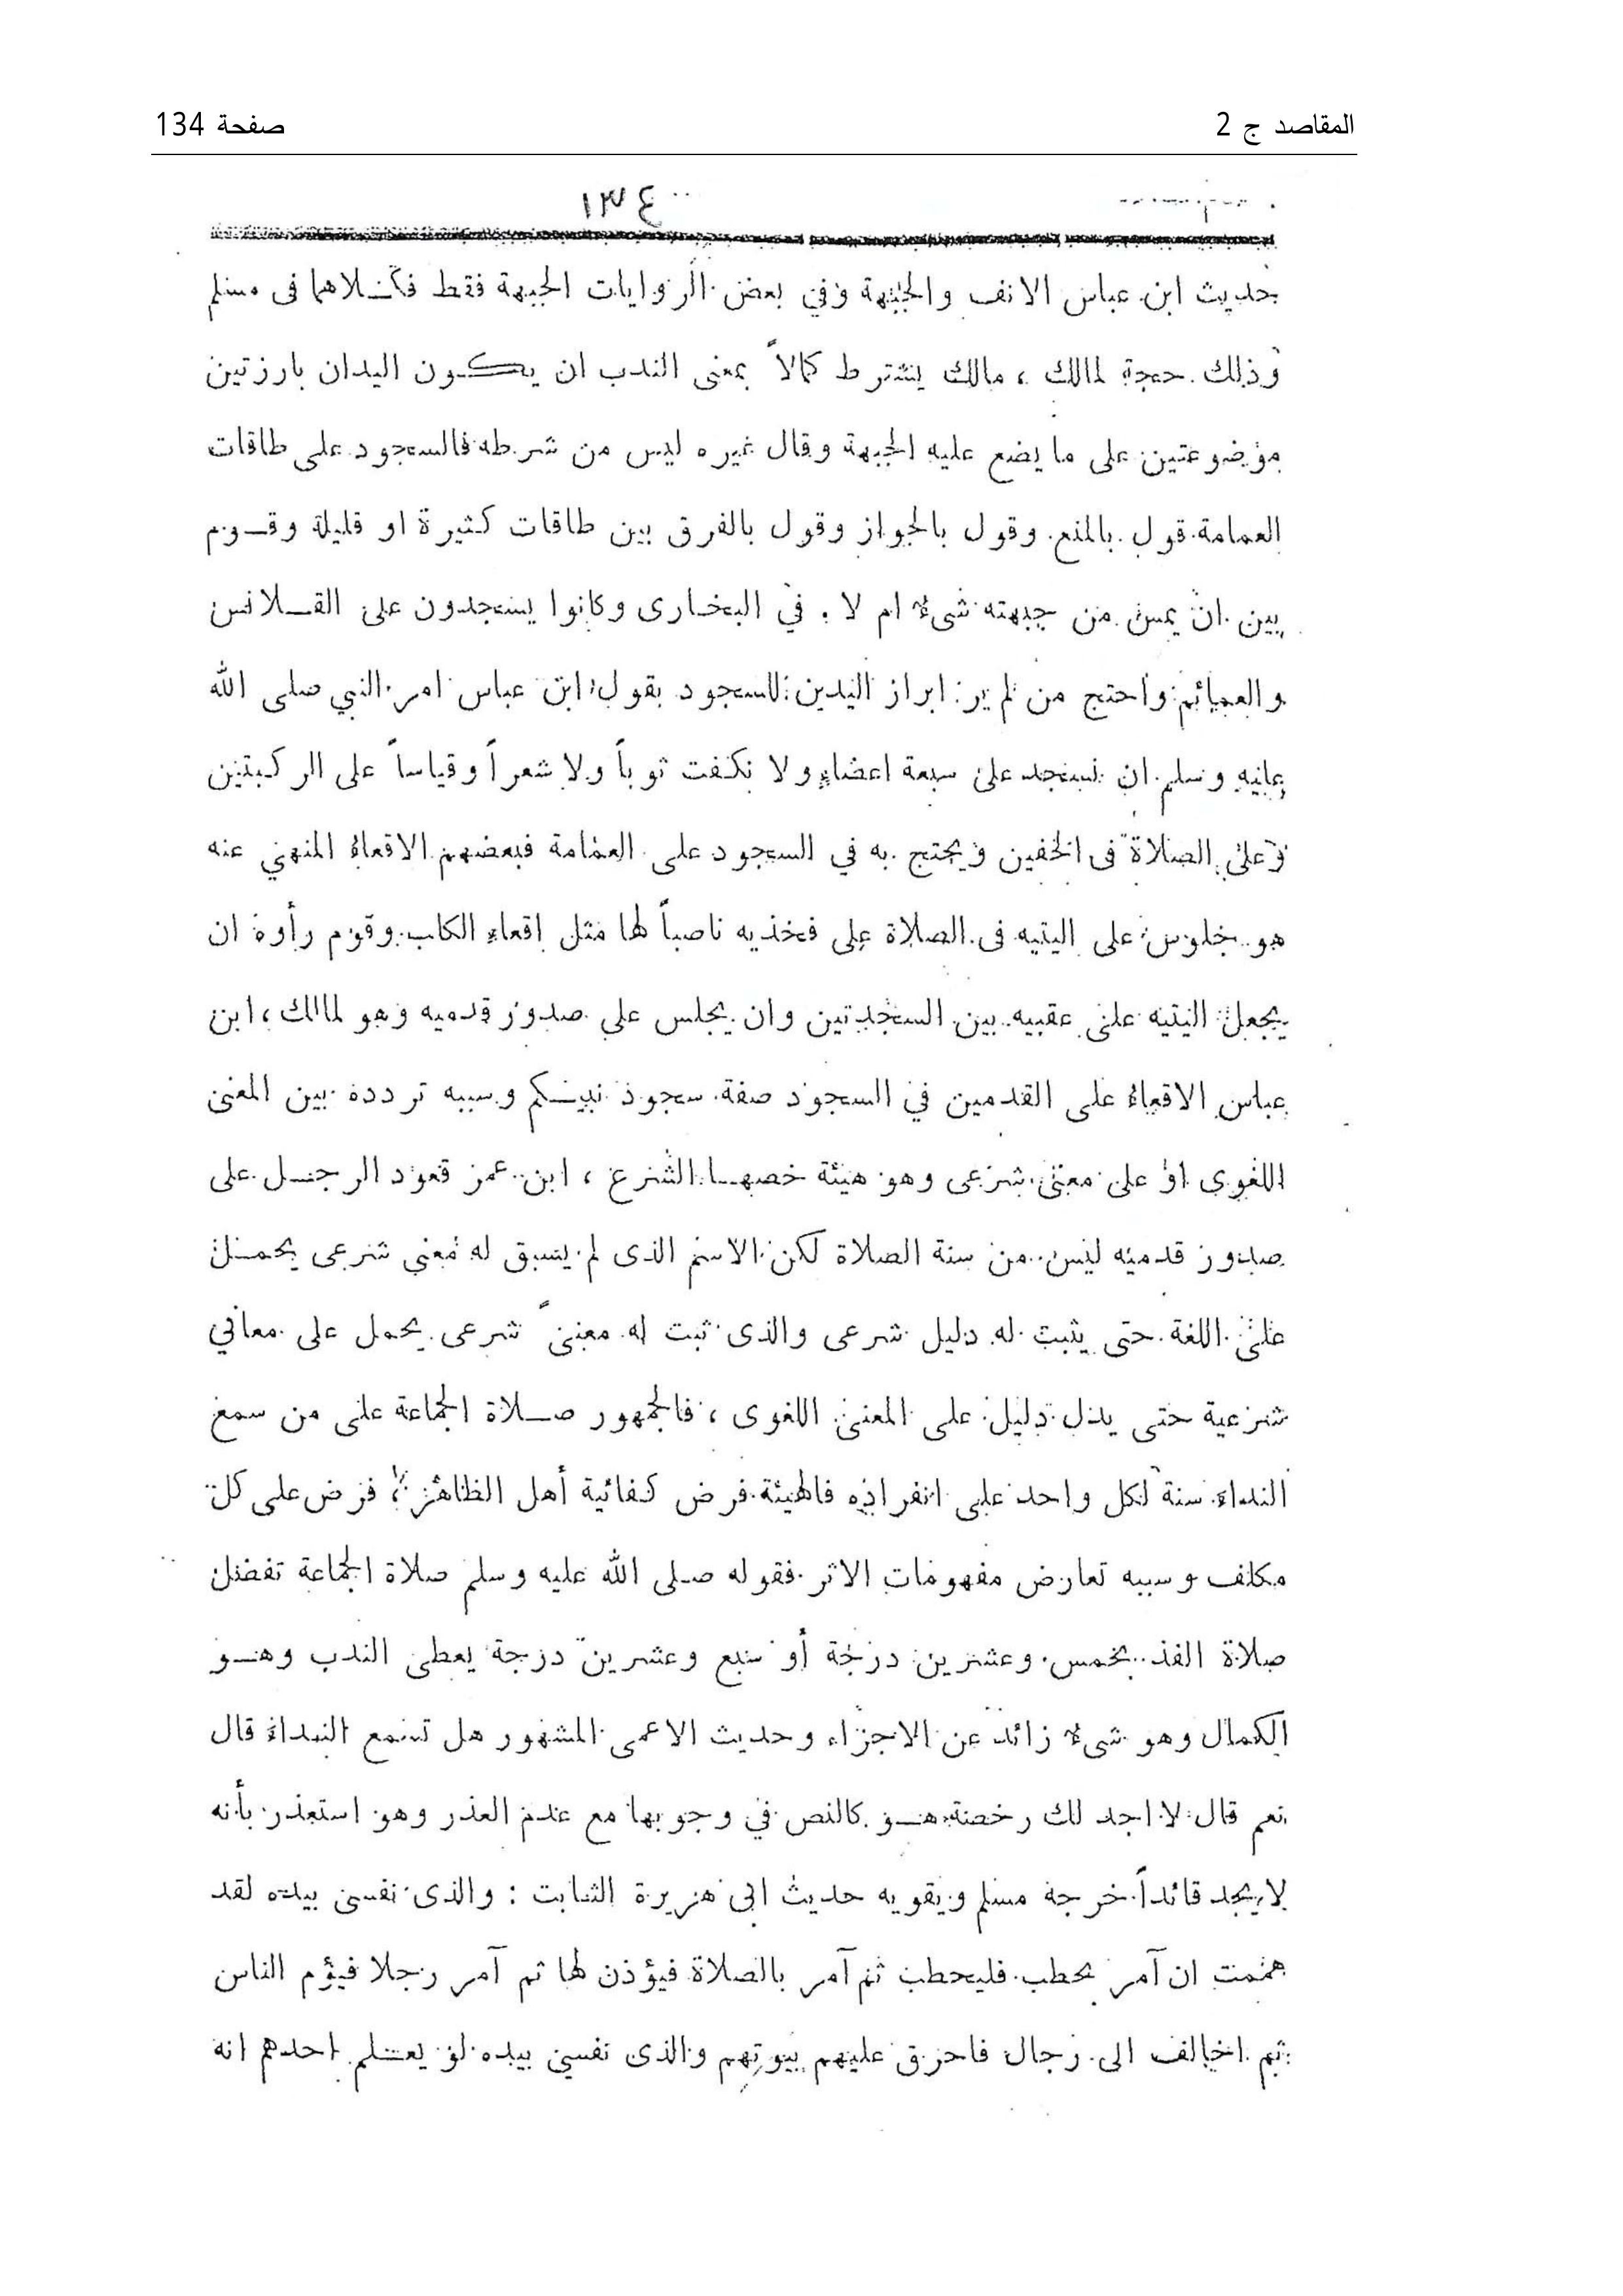 المقاصد ج 2 صفحة 134
١٣٤
حديث ابن عباس الانف والجبهة وفي بعض الروايات الجبهة فقط فكلاهما فى مسلم
وذلك حجة لمالك ، مالك يشترط كمالاً بمعنى الندب ان يكون اليدان بارزتين
موضوعتين على ما يضع عليه الجبهة وقال غيره ليس من شرطه فالسجود على طاقات
العمامة قول بالمنع وقول بالجواز وقول بالفرق بين طاقات كثيرة او قليلة وقوم
بين ان يمس من جبهته شىء ام لا . في البخارى وكانوا يسجدون على القلانس
والعمائم واحتج من لم ير ابراز اليدين للسجود بقول ابن عباس امر النبي صلى الله
عليه وسلم ان نسجد على سبعة اعضاء ولا نكفت ثوباً ولا شعراً وقياساً على الركبتين
وعلى الصلاة فى الخفين ويحتج به في السجود على العمامة فبعضهم الاقعاء المنهي عنه
هو جلوس على اليتيه فى الصلاة على فخذيه ناصباً لها مثل اقعاء الكلب وقوم رأوه ان
يجعل اليتيه على عقبيه بين السجدتين وان يجلس على صدور قدميه وهو لمالك ، ابن
عباس الاقعاء على القدمين في السجود صفة سجود نبيكم وسببه تردده بين المعنى
اللغوى او على معنى شرعى وهو هيئة خصها الشرع ، ابن عمر قعود الرجل على
صدور قدميه ليس من سنة الصلاة لكن الاسم الذى لم يسبق له معنى شرعى يحمل
على اللغة حتى يثبت له دليل شرعى والذى ثبت له معنىً شرعى يحمل على معاني
شرعية حتى يدل دليل على المعنى اللغوى ، فالجمهور صلاة الجماعة على من سمع
النداء سنة لكل واحد على انفراده فالهيئة فرض كفائية أهل الظاهر ؛ فرض على كل
مكلف وسببه تعارض مفهومات الاثر فقوله صلى الله عليه وسلم صلاة الجماعة تفضل
صلاة الفذ بخمس وعشرين درجة أو سبع وعشرين درجة يعطى الندب وهو
الكمال وهو شىء زائد عن الاجزاء وحديث الاعمى المشهور هل تسمع النداء قال
نعم قال لا اجد لك رخصة هو كالنص في وجوبها مع عدم العذر وهو استعذر بأنه
لا يجد قائداً خرجه مسلم ويقويه حديث ابى هريرة الثابت : والذى نفسى بيده لقد
هممت ان آمر بحطب فليحطب ثم آمر بالصلاة فيؤذن لها ثم آمر رجلا فيؤم الناس
ثم اخالف الى رجال فاحرق عليهم بيوتهم والذى نفسي بيده لو يعلم احدهم انه